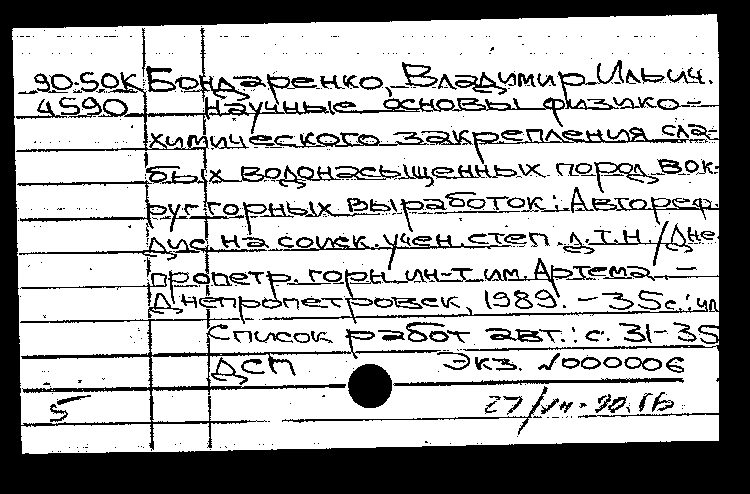 90-50К Бондаренко, Владимир Ильич.
4590 Научные основы физико-
химического закрепления сла-
бых водонасыщенных пород вок-
руг горных выработок: Автореф.
дис. на соиск. учен. степ. д.т.н. / Дне-
пропетр. горн. ин-т им. Артема. –
Днепропетровск, 1989. – 35 с.: ил
Список работ авт.: с. 31-35
ДСП Экз. №000006
5 27/VII-90.